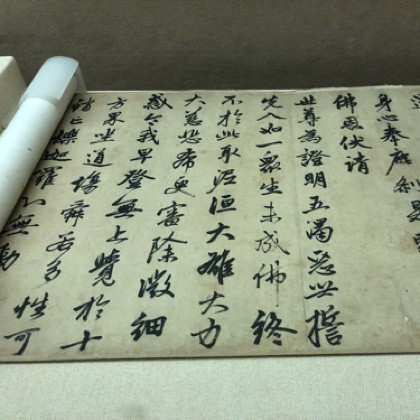 身心奉塵剎
佛恩伏請
世尊為證明五濁惡世誓
先入如一眾生未成佛終
不於此取泥洹大雄大力
大慈悲希更審除微細
惑令我早登無上覺於十
方界坐道場舜若多性可
銷亡爍迦羅心無動